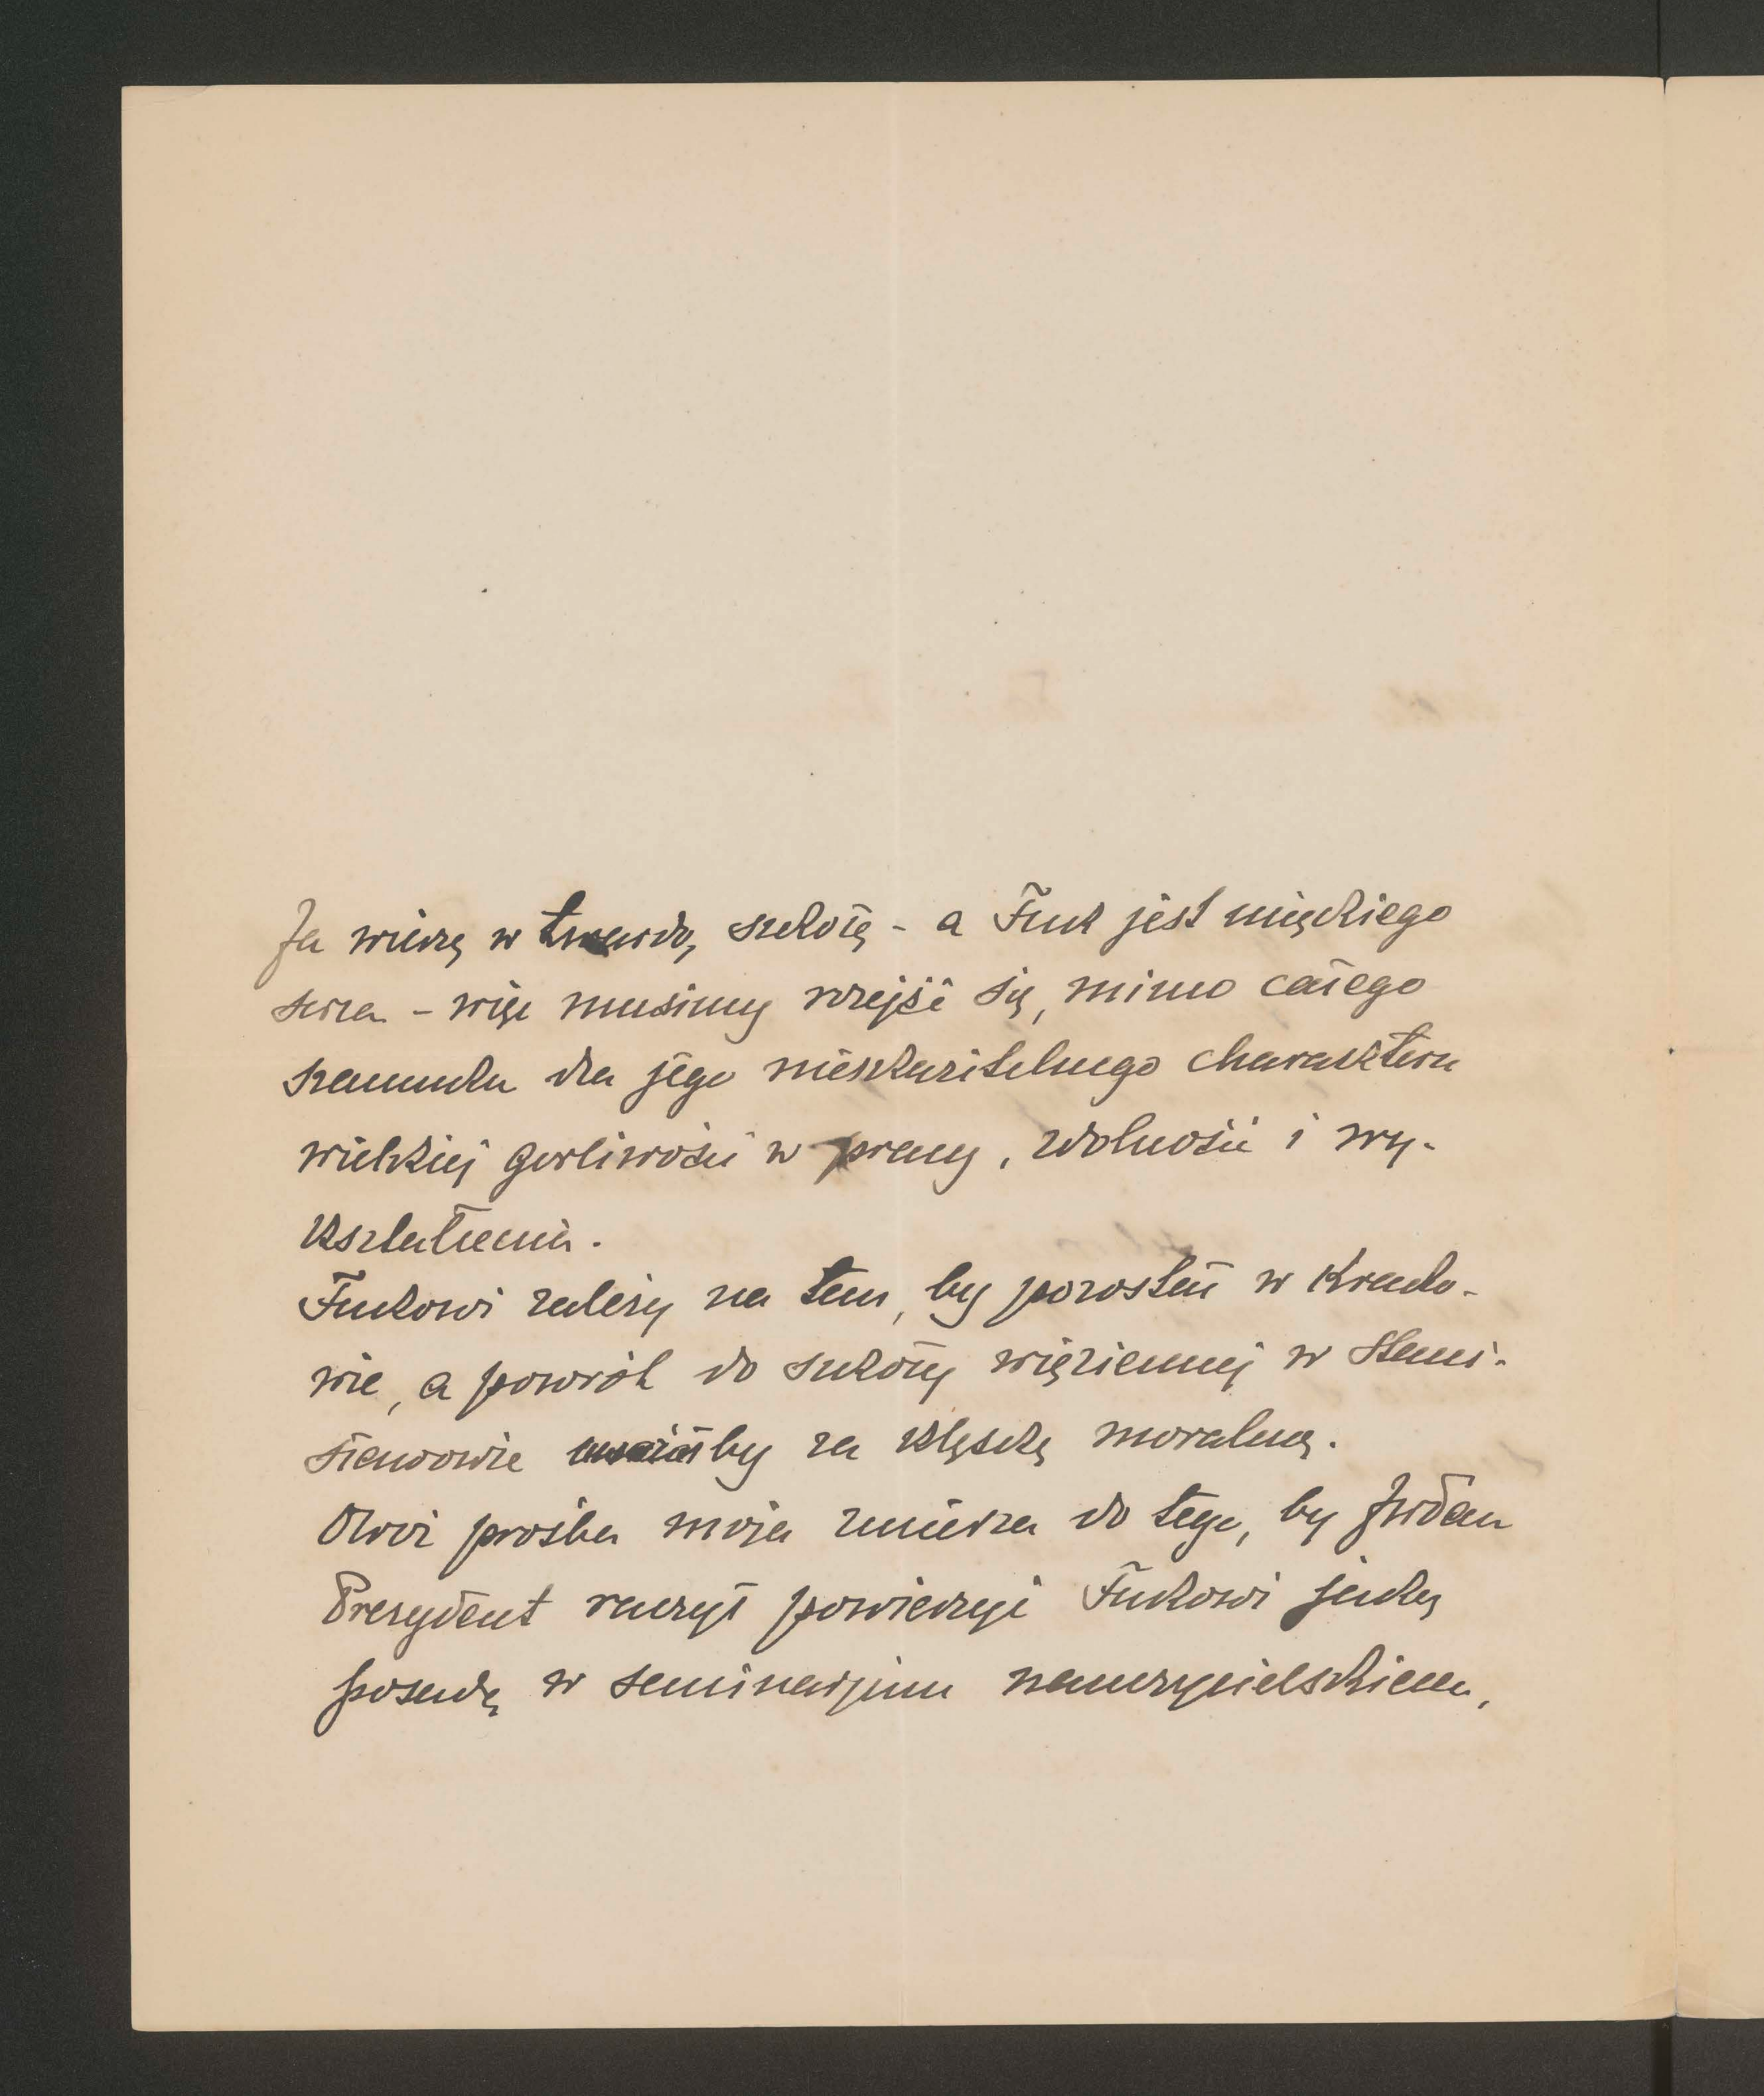 Ja wierzę w twardą szkołę - a Fuk jest miękkiego
serca - więc musimy rozejść się, mimo całego
szacunku dla jego nieskazitelnego charakteru
wielkiej gorliwości w pracy, zdolności i wy-
kształcenia.
Fukowi zależy na tem, by pozostać w Krako-
wie, a powrót do szkoły więziennej w Stani-
sławowie uważałby za klęskę moralną.
Otóż prośba moja zmierza do tego, by JWPan
Prezydent raczył powierzyć Fukowi jaką
posadę w seminarjum nauczycielskiem,